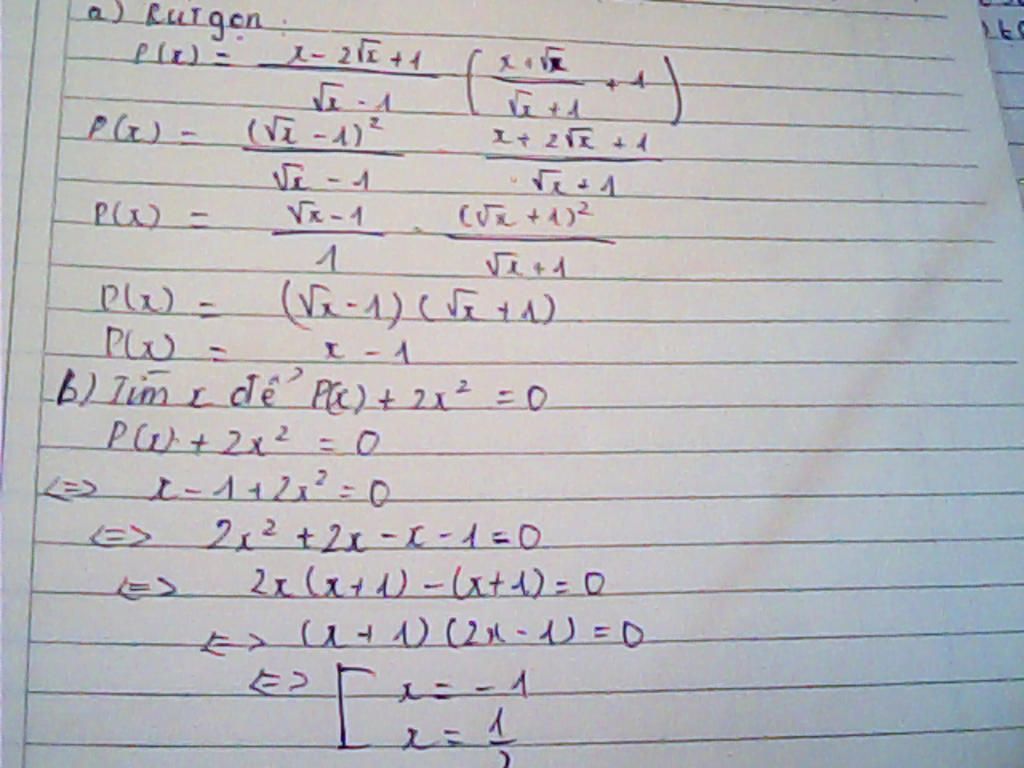 a) Rút gọn.
P(x) = \frac{x - 2\sqrt{x} + 1}{\sqrt{x} - 1} \left( \frac{x + \sqrt{x}}{\sqrt{x} + 1} + 1 \right)
P(x) = \frac{(\sqrt{x} - 1)^2}{\sqrt{x} - 1} \cdot \frac{x + 2\sqrt{x} + 1}{\sqrt{x} + 1}
P(x) = \frac{\sqrt{x} - 1}{1} \cdot \frac{(\sqrt{x} + 1)^2}{\sqrt{x} + 1}
P(x) = (\sqrt{x} - 1)(\sqrt{x} + 1)
P(x) = x - 1
b) Tìm x để P(x) + 2x² = 0
P(x) + 2x² = 0
<=> x - 1 + 2x² = 0
<=> 2x² + 2x - x - 1 = 0
<=> 2x(x + 1) - (x + 1) = 0
<=> (x + 1)(2x - 1) = 0
<=> [ x = -1
x = \frac{1}{2}